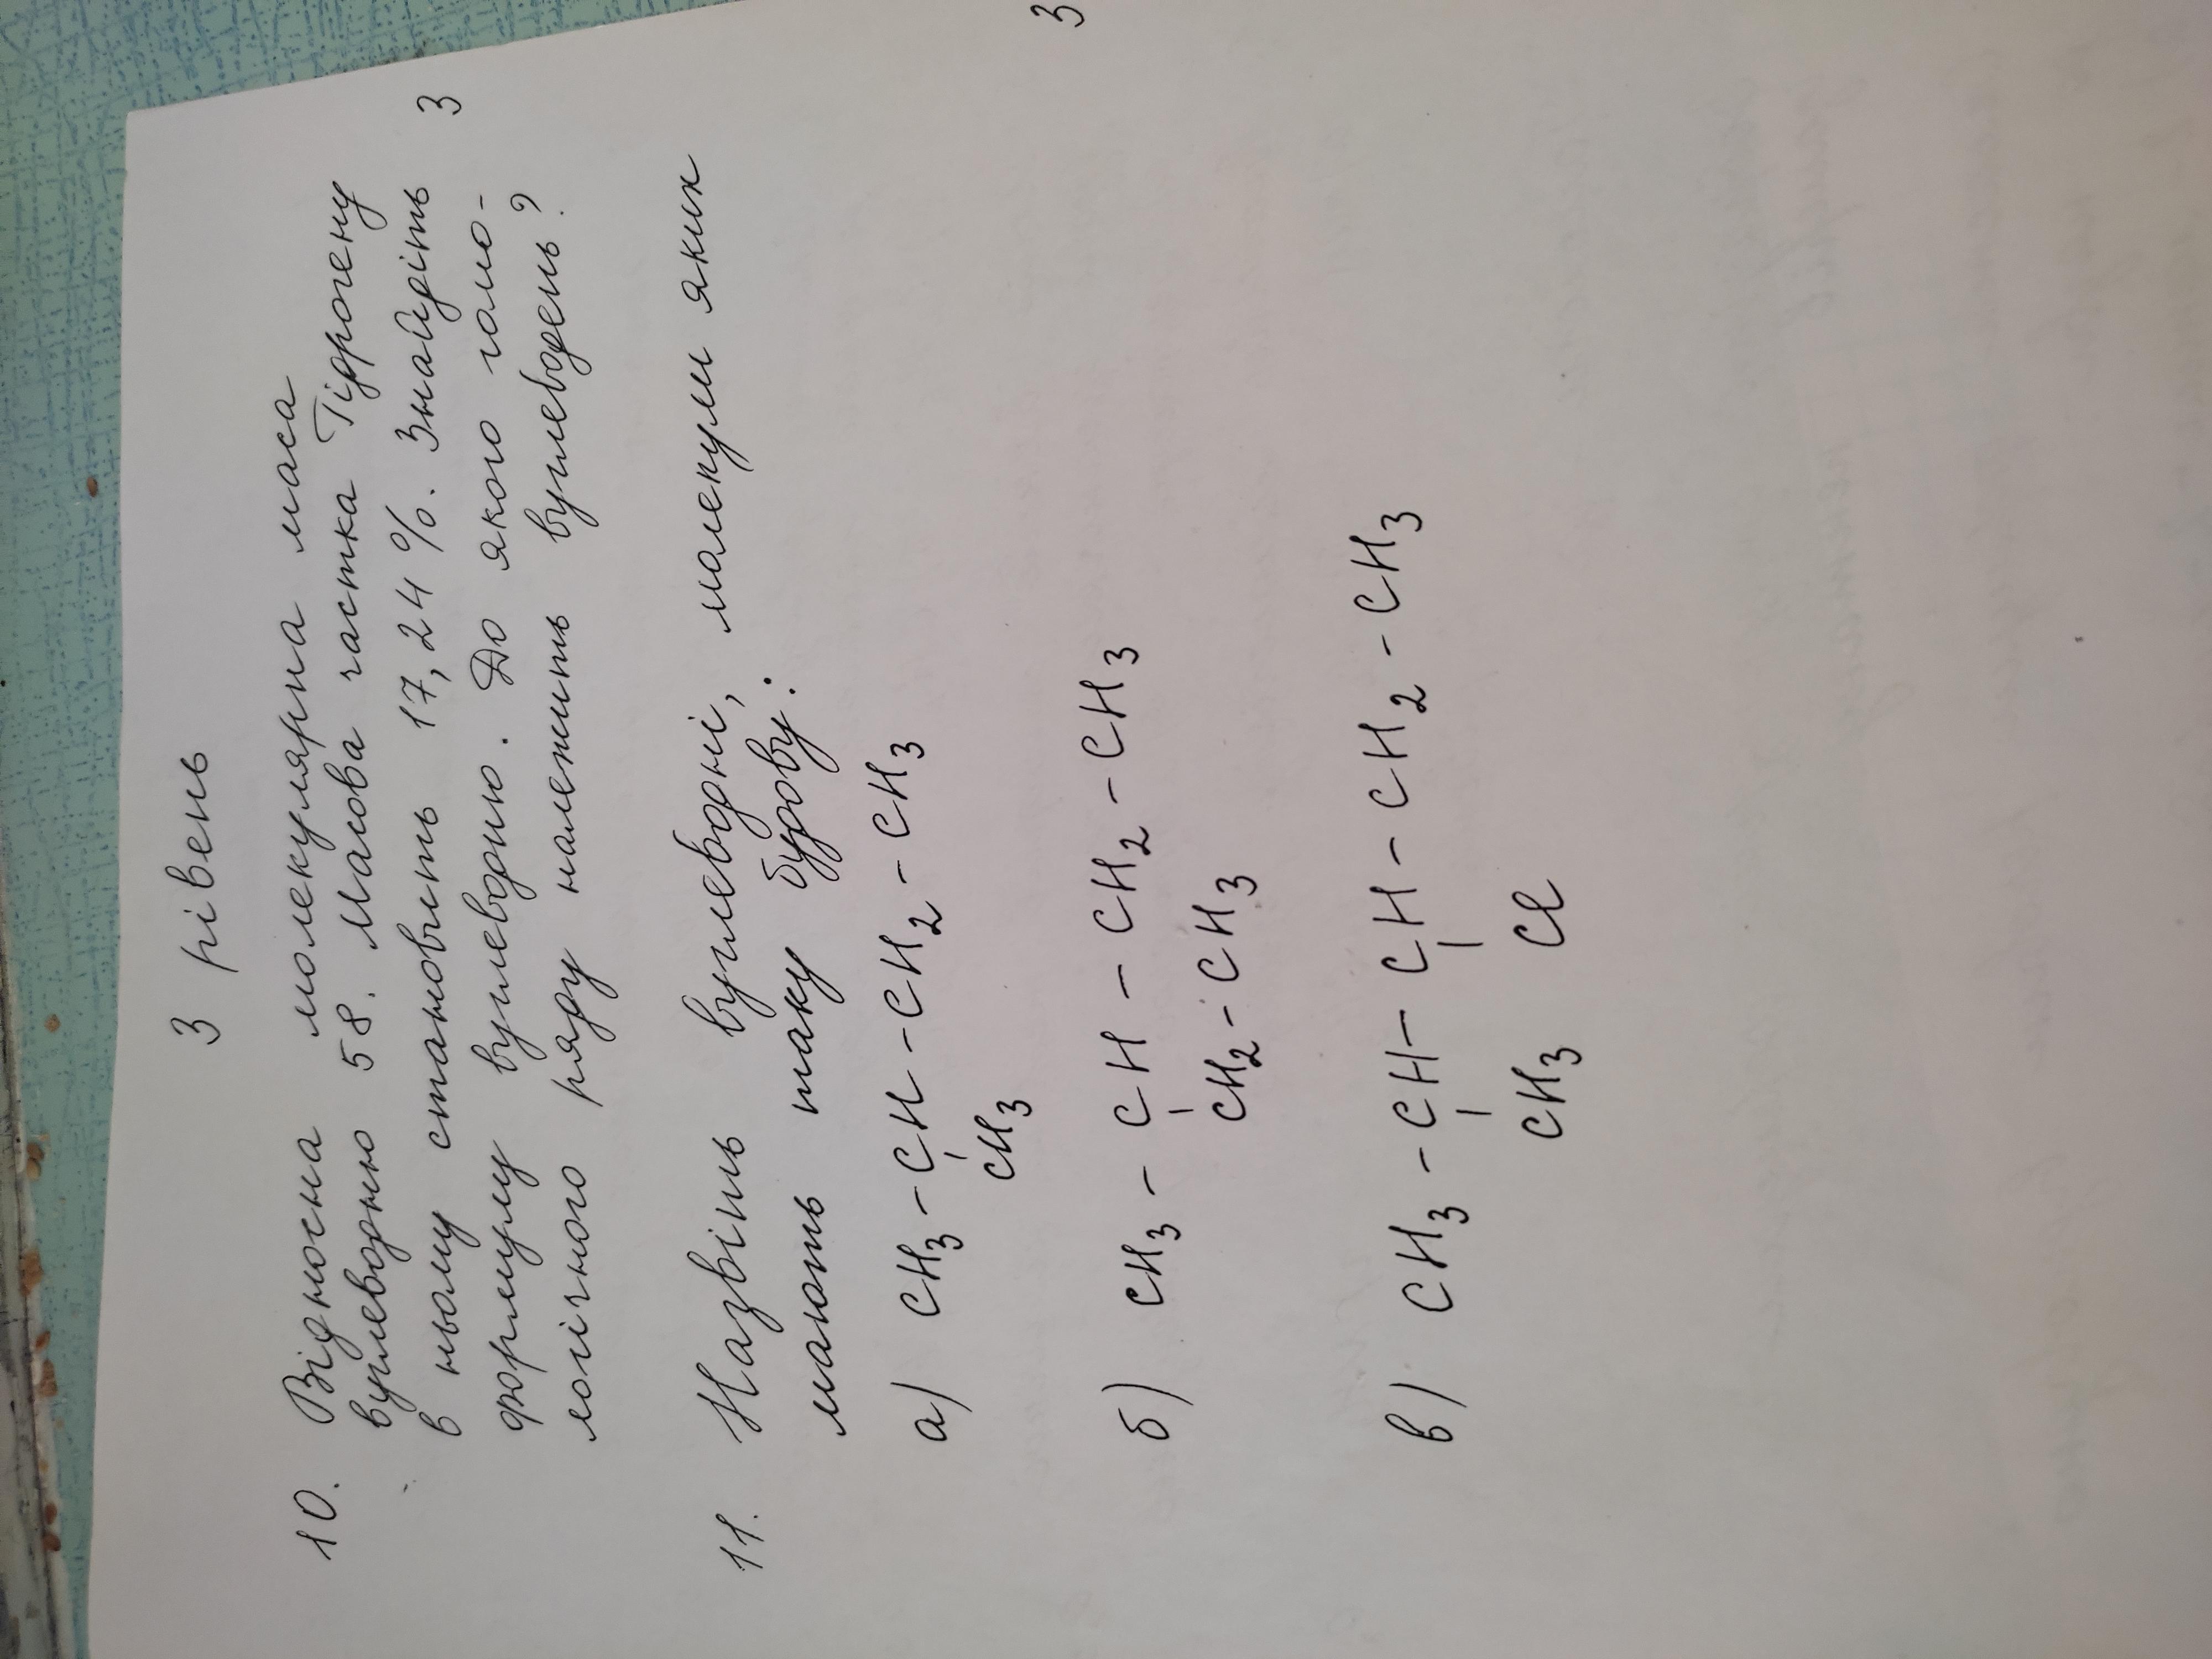 3 рівень
10. Відносна молекулярна маса
вуглеводню 58. Масова частка Гідрогену
в ньому становить 17,24%. Знайдіть 3
формулу вуглеводню. До якого гомо-
логічного ряду належить вуглеводень?
11. Назвіть вуглеводні, молекули яких
мають таку будову:
а) CH3 - CH - CH2 - CH3
CH3
3
б) CH3 - CH - CH2 - CH3
CH2 - CH3
в) CH3 - CH - CH - CH2 - CH3
CH3 Cl